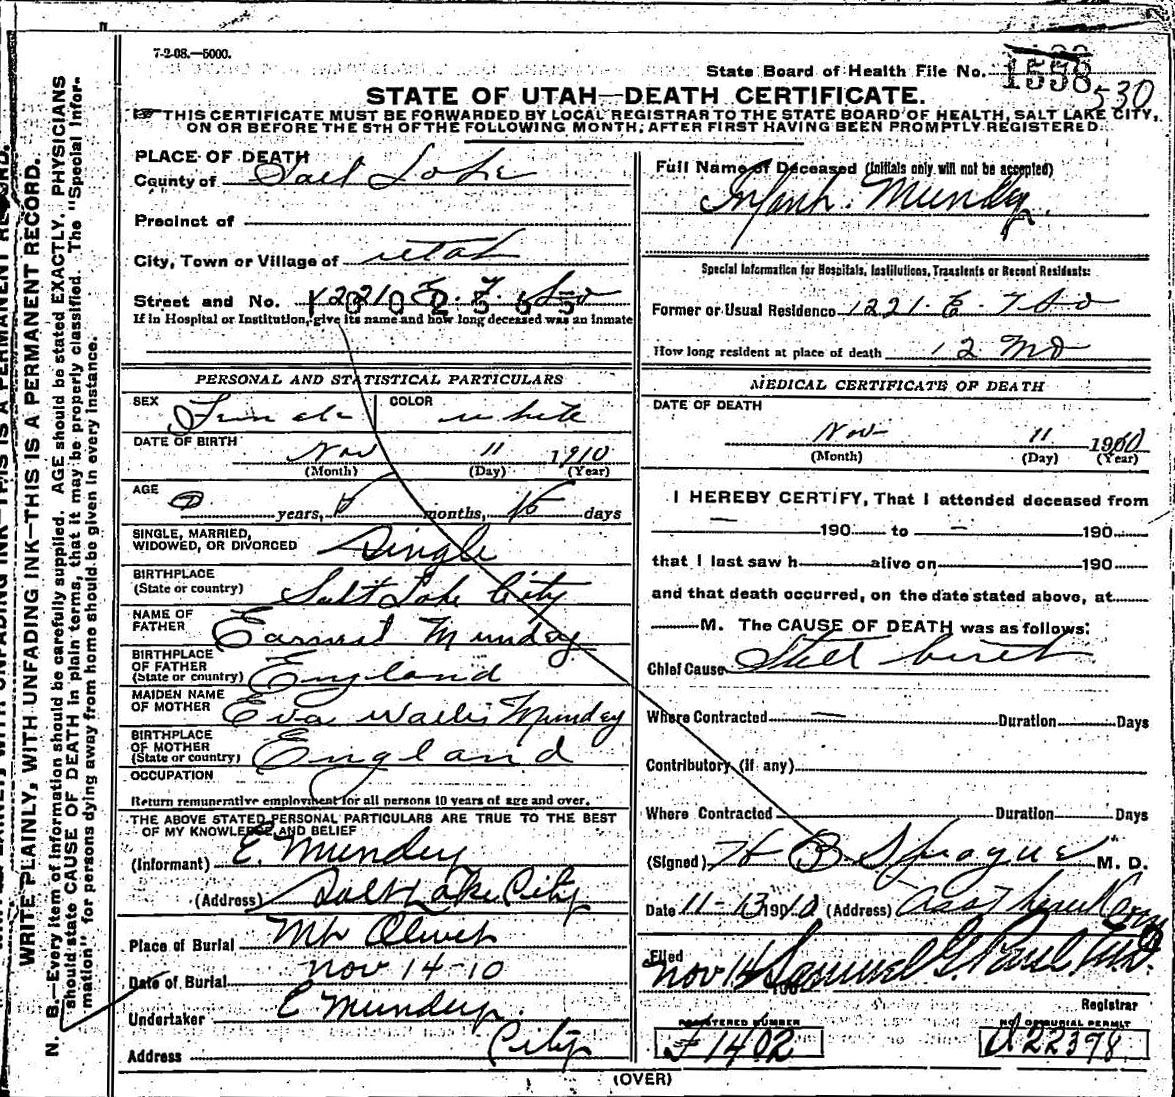 7-2-08.—5000.
State Board of Health File No. 1558 530
STATE OF UTAH—DEATH CERTIFICATE.
THIS CERTIFICATE MUST BE FORWARDED BY LOCAL REGISTRAR TO THE STATE BOARD OF HEALTH, SALT LAKE CITY,
ON OR BEFORE THE 5TH OF THE FOLLOWING MONTH, AFTER FIRST HAVING BEEN PROMPTLY REGISTERED.
WRITE PLAINLY, WITH UNFADING INK—THIS IS A PERMANENT RECORD.
N. B.—Every item of information should be carefully supplied. AGE should be stated EXACTLY. PHYSICIANS
should state CAUSE OF DEATH in plain terms, that it may be properly classified. The "Special Infor-
mation" for persons dying away from home should be given in every instance.
PLACE OF DEATH
County of Salt Lake
Precinct of
City, Town or Village of Utah
Street and No. 1221 E. 7 So
If in Hospital or Institution, give its name and how long deceased was an inmate
PERSONAL AND STATISTICAL PARTICULARS
SEX Female COLOR white
DATE OF BIRTH Nov 11 1910
(Month) (Day) (Year)
AGE 0 years, months, days
SINGLE, MARRIED,
WIDOWED, OR DIVORCED Single
BIRTHPLACE
(State or country) Salt Lake City
NAME OF
FATHER Earnest Mundey
BIRTHPLACE
OF FATHER
(State or country) England
MAIDEN NAME
OF MOTHER Eva Wallis Mundey
BIRTHPLACE
OF MOTHER
(State or country) England
OCCUPATION
Return remunerative employment for all persons 10 years of age and over.
THE ABOVE STATED PERSONAL PARTICULARS ARE TRUE TO THE BEST
OF MY KNOWLEDGE AND BELIEF
(Informant) E. Mundey
(Address) Salt Lake City
Place of Burial Mt Olivet
Date of Burial Nov 14-10
Undertaker E Mundey.
Address City
Full Name of Deceased (Initials only will not be accepted)
Infant. Mundey.
Special Information for Hospitals, Institutions, Transients or Recent Residents:
Former or Usual Residence 1221. E. 7 So
How long resident at place of death 12 Mo
MEDICAL CERTIFICATE OF DEATH
DATE OF DEATH
Nov 11 1910
(Month) (Day) (Year)
I HEREBY CERTIFY, That I attended deceased from
— 190 to — 190
that I last saw h alive on 190
and that death occurred, on the date stated above, at
M. The CAUSE OF DEATH was as follows:
Chief Cause Still birth
Where Contracted — Duration Days
Contributory (if any)
Where Contracted Duration Days
(Signed) H B Sprague M. D.
Date 11-13 1910 (Address)
Filed
Nov 14 Samuel G. Paul M.D.
Registrar
REGISTERED NUMBER
F1402
NO. OF BURIAL PERMIT
A22398
(OVER)